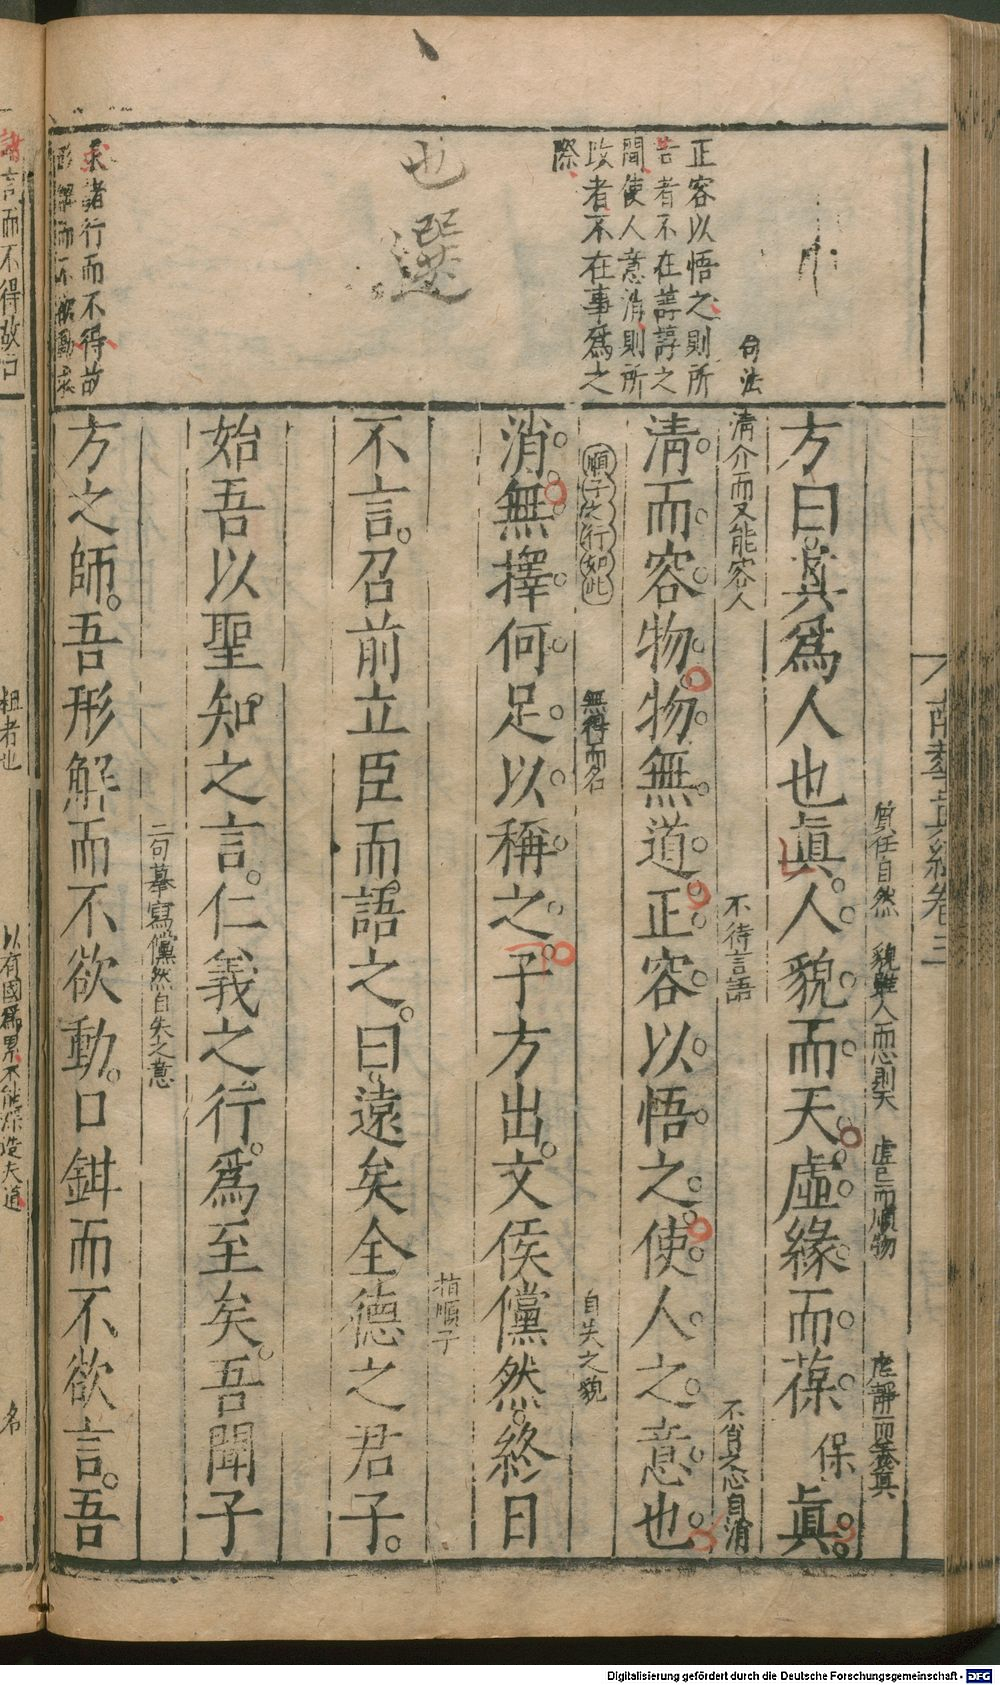 南華真經卷三
質任自然　貌雖人而心則天　虛己而順物　虛靜而養真
方曰其爲人也眞人貌而天虛緣而葆保眞
句法
清介而又能容人　不待言語　不肖之心自消
正容以悟之則所
告者不在諄諄之
間使人意消則所
改者不在事爲之
際
清而容物物無道正容以悟之使人之意也
順子之行如此　無得而名　自失之貌
消無擇何足以稱之子方出文侯儻然終日
也選
指順子
不言召前立臣而語之曰遠矣全德之君子
始吾以聖知之言仁義之行爲至矣吾聞子
二句摹寫儻然自失之意
求諸行而不得故
形解而不欲動求
方之師吾形解而不欲動口鉗而不欲言吾
諸言而不得故口
粗者也
以有國爲累不能深造夫道
名
Digitalisierung gefördert durch die Deutsche Forschungsgemeinschaft - DFG